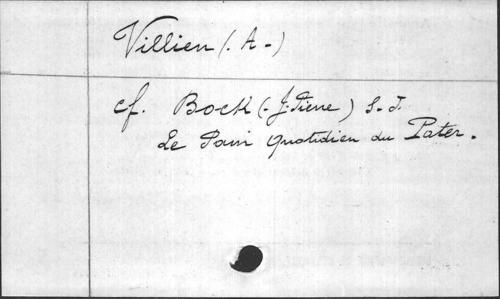 Villien (. A-)
cf. Bock (-J. Pierre) S-J.
Le Pain quotidien du Pater.